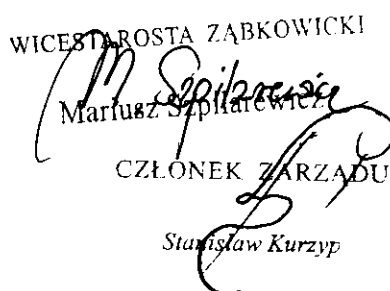 WICESTAROSTA ZĄBKOWICKI
M Szpilarewicz
Mariusz Szpilarewicz
CZŁONEK ZARZĄDU
Stanisław Kurzyp